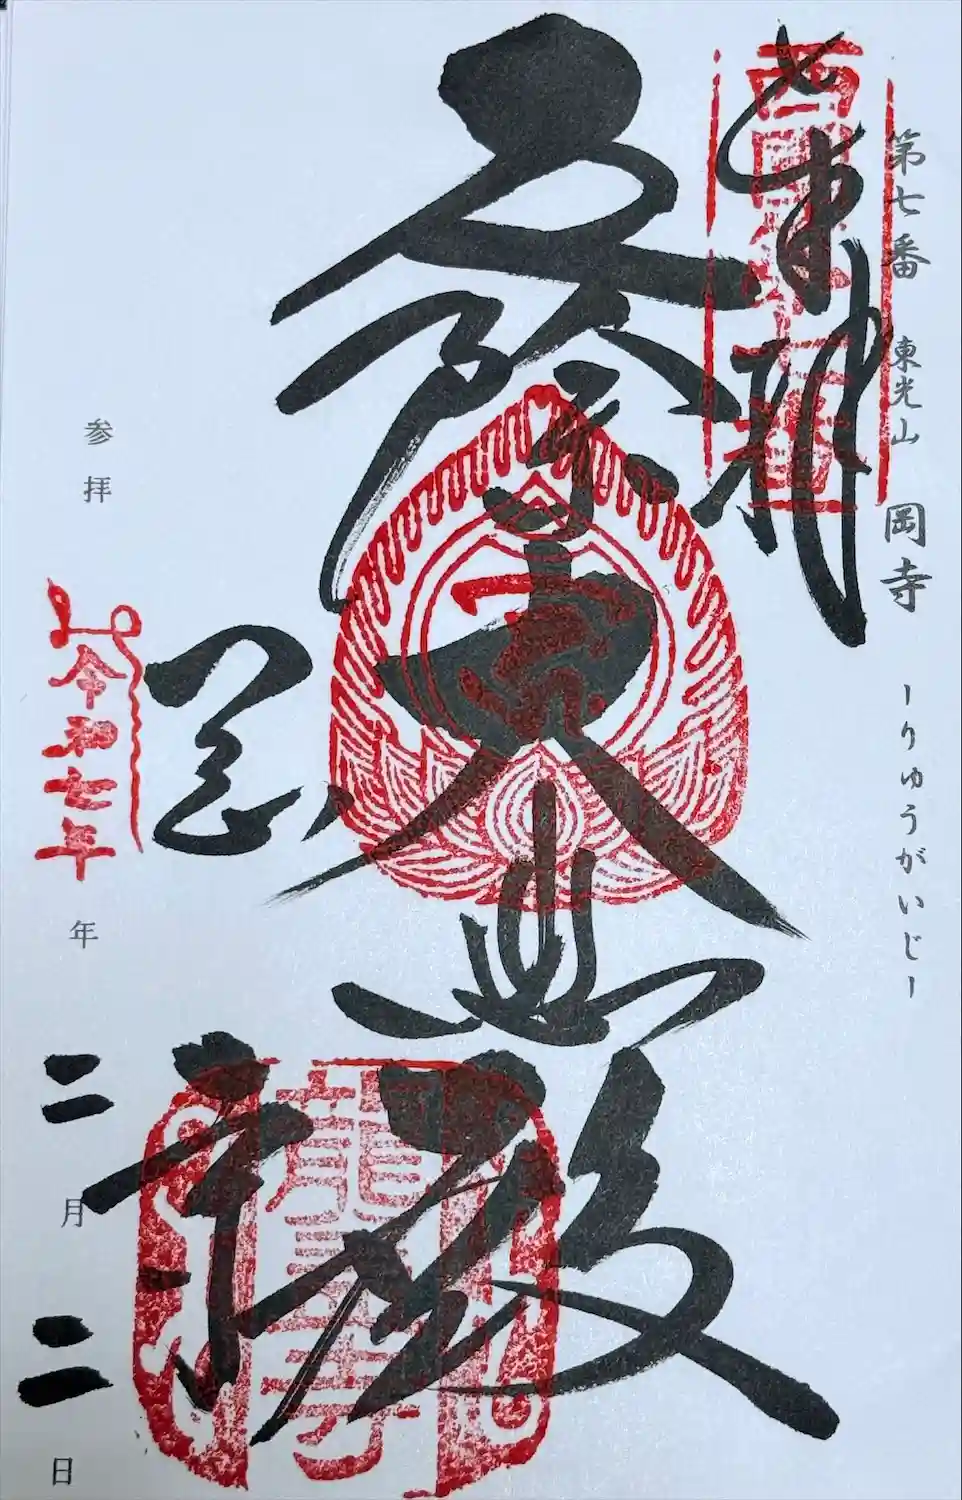 第七番 東光山 岡寺 ーりゅうがいじー
奉拝
西国第七番
厄除大悲殿
龍蓋寺
岡寺
参拝
令和七年
年
二
月
二
日